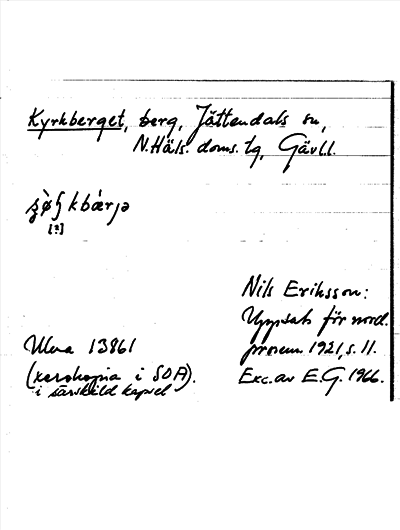 Kyrkberget, berg, Jättendals sn,
N. Häls. doms. tg, Gävl.l.
kbærjə
[?]
Nils Eriksson:
Uppsats för nord.
prosem. 1921, s. 11.
Exc. av E.G. 1966.
Ulma 13861
(xerokopia i SOA).
i särskild kapsel